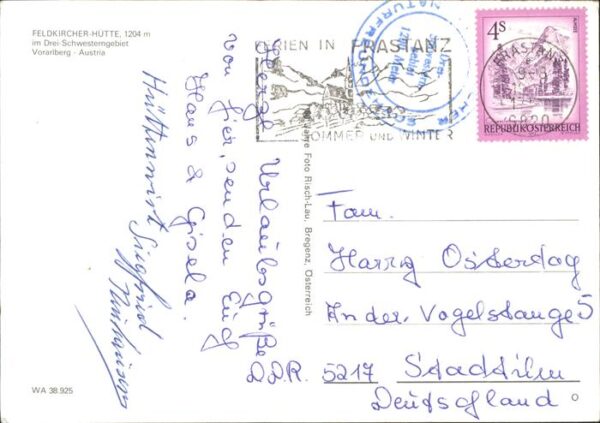 FELDKIRCHER-HÜTTE, 1204 m
im Drei-Schwesterngebiet
Vorarlberg - Austria
FERIEN IN FRASTANZ
SOMMER UND WINTER
NATURFREUNDE
4S
REPUBLIK ÖSTERREICH
FRASTANZ
6820
Herzl. Urlaubsgrüße
von hier, senden Euch
Hans & Gisela.
Hüttenwirt Siegfried
Foto Risch-Lau, Bregenz, Österreich
Fam.
Harry Osterdag
An der Vogelstange 5
DDR. 5217 Stadtilm
Deutschland.
WA 38.925